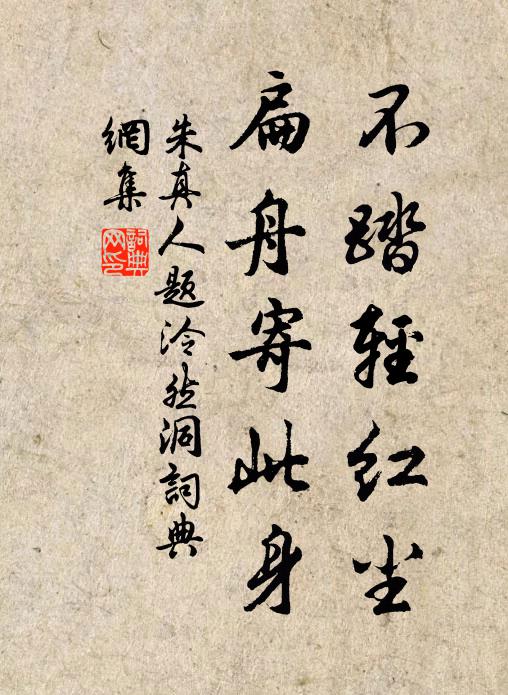 不踏輕紅尘
扁舟寄此身
朱真人题泠然洞詞典
網集
詞典网印